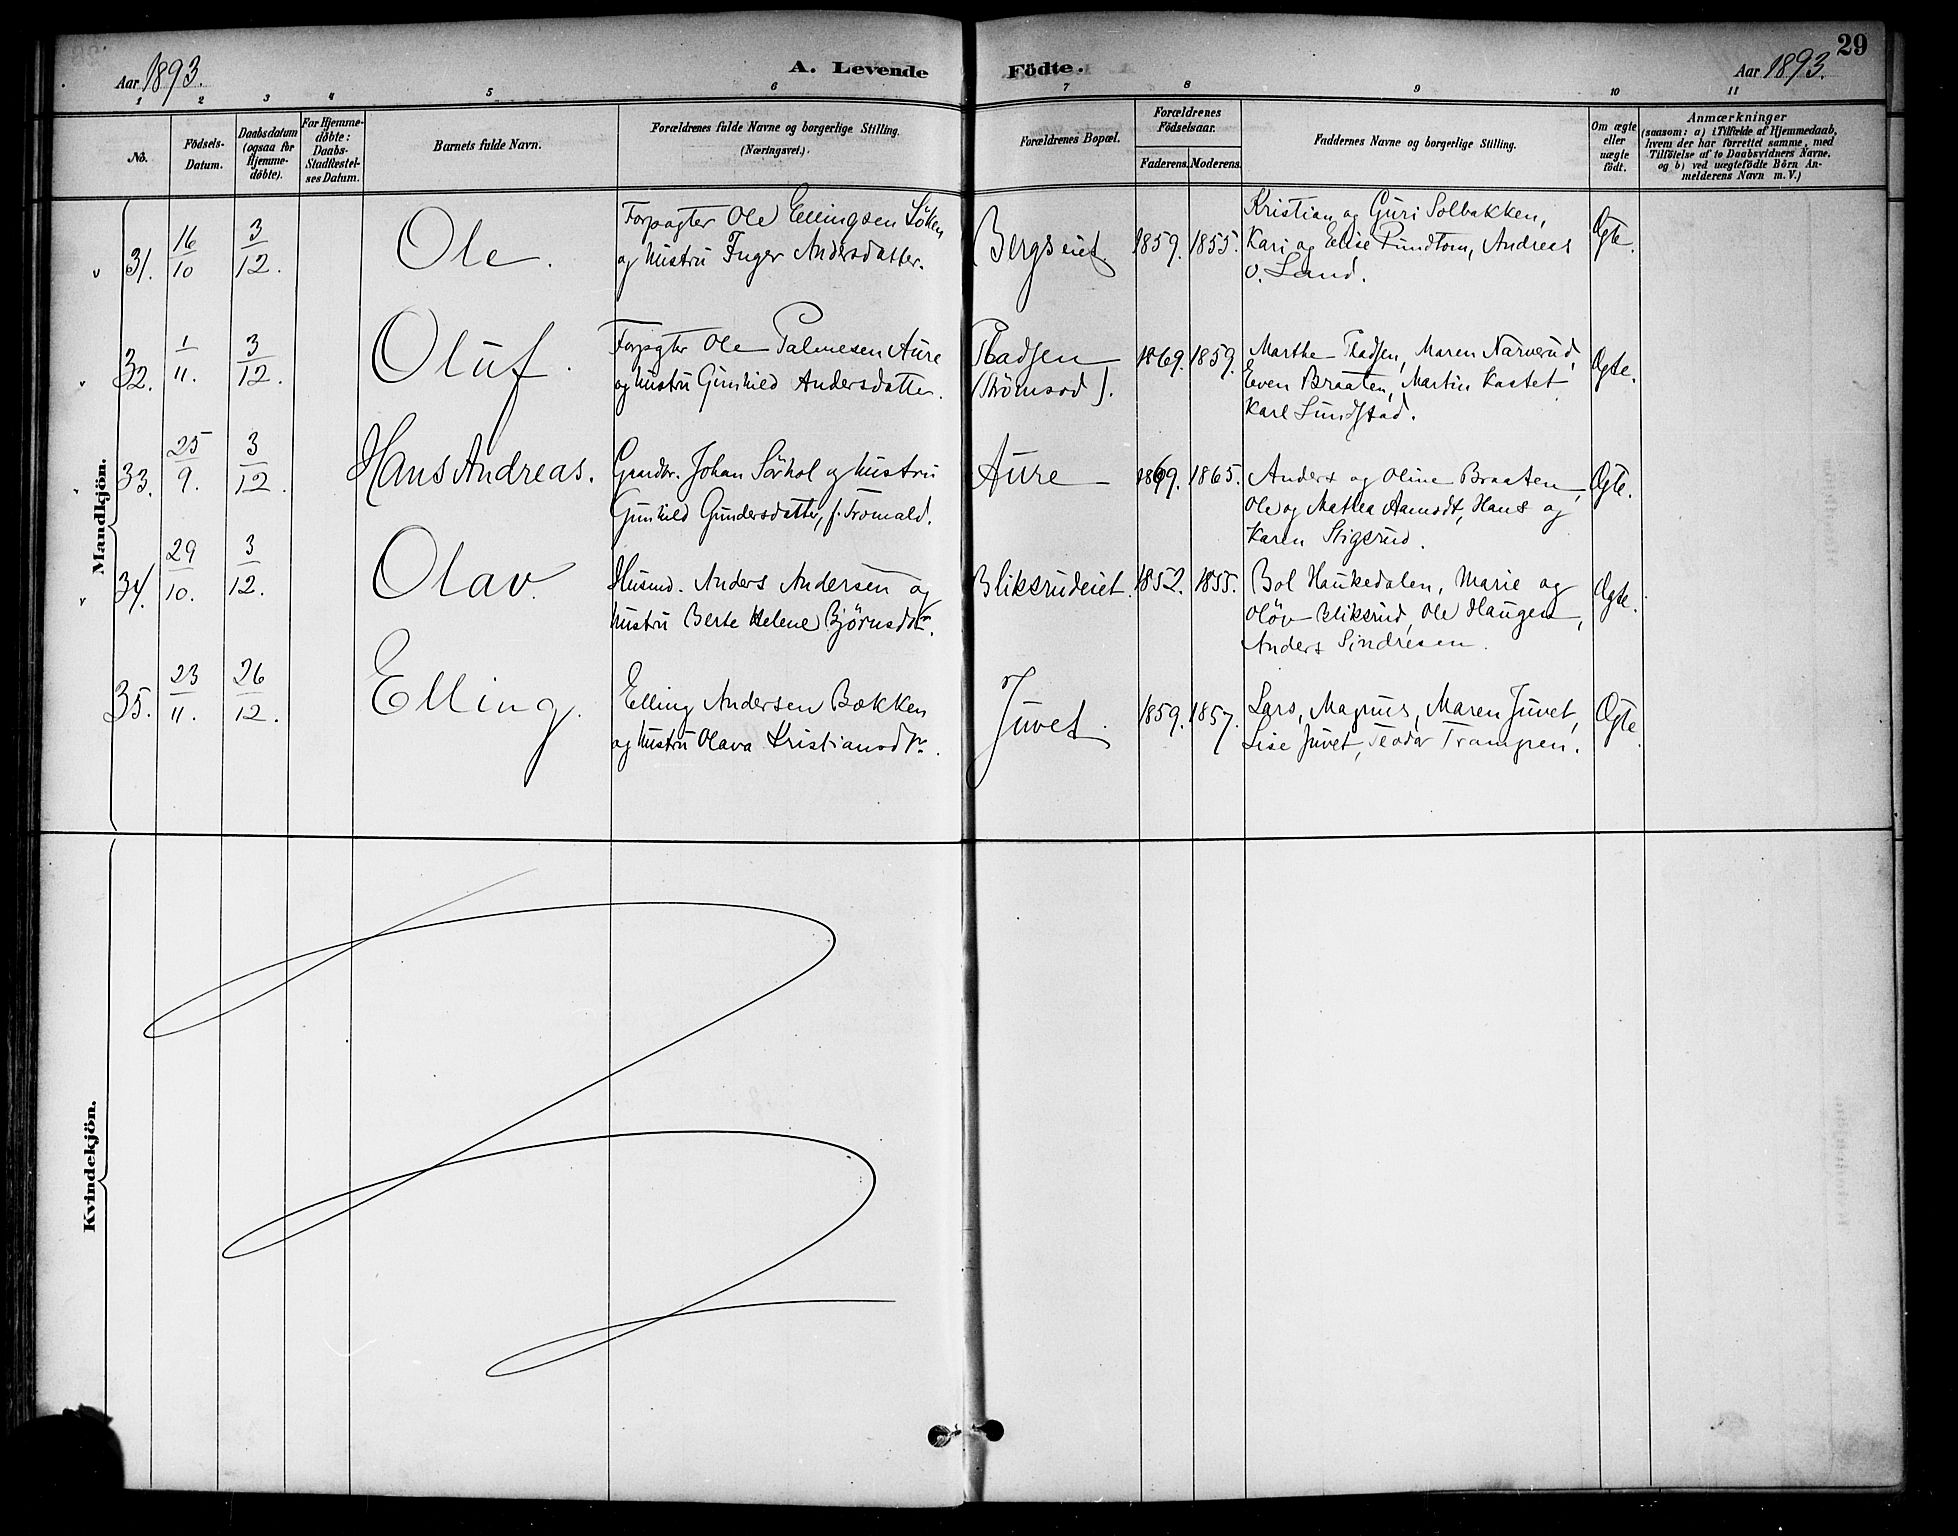 29
Aar 1893.
A. Levende Födte.
Aar 1893.
1 2 3 4 5 6 7 8 9 10 11
No.
Födsels-
Datum.
Daabsdatum
(ogsaa for
Hjemme-
döbte).
For Hjemme-
döbte:
Daabs-
Stadfæstel-
ses Datum.
Barnets fulde Navn.
Forældrenes fulde Navne og borgerlige Stilling.
(Næringsvei.)
Forældrenes Bopæl.
Forældrenes
Födselsaar.
Faderens. Moderens.
Faddernes Navne og borgerlige Stilling.
Om ægte
eller
uægte
födt.
Anmærkninger
(saasom: a) i Tilfælde af Hjemmedaab,
hvem der har forrettet samme, med
Tilföielse af to Daabsvidners Navne,
og b) ved uægtefödte Börn An-
melderens Navn m. V.)
Mandkjön.
31. 16/10 3/12. Ole.
Forpagter Ole Ellingsen Söken
og hustru Inger Andersdatter.
Bergseiet. 1859. 1855.
Kristian og Guri Solbakken,
Kari og Elise Rundtom, Andreas
v. Land.
Ægte.
32. 1/11. 3/12. Oluf.
Forpgter Ole Palmesen Aure
og hustru Gunhild Andersdatter.
Pladsen
(Strømsod).
1869. 1859.
Marthe Pladsen, Maren Narverud,
Even Braaten, Martin Kastet
Karl Sundstad.
Ægte.
33. 25/9. 3/12. Hans Andreas.
Gaardbr. Johan Sørhol og hustru
Gunhild Gundersdatter, f. Tromald.
Aure 1869. 1865.
Anders og Oline Braaten,
Ole og Mathea Aamodt, Hans og
Karen Stigsrud.
Ægte.
34. 29/10. 3/12. Olav.
Husmd. Anders Andersen og
hustru Berte Helene Bjørnsdtr.
Bliksrudeiet. 1852. 1855.
Bol Haukedalen, Marie og
Oløv Bliksrud, Ole Haugen,
Anders Sindresen.
Ægte.
35. 23/11. 26/12. Elling.
Elling Andersen Bækken
og hustru Olava Kristiansdtr.
Juvet. 1859. 1857.
Lars, Magnus, Maren Juvet,
Lise Juvet, Teodor Trampen.
Ægte.
Kvindekjön.